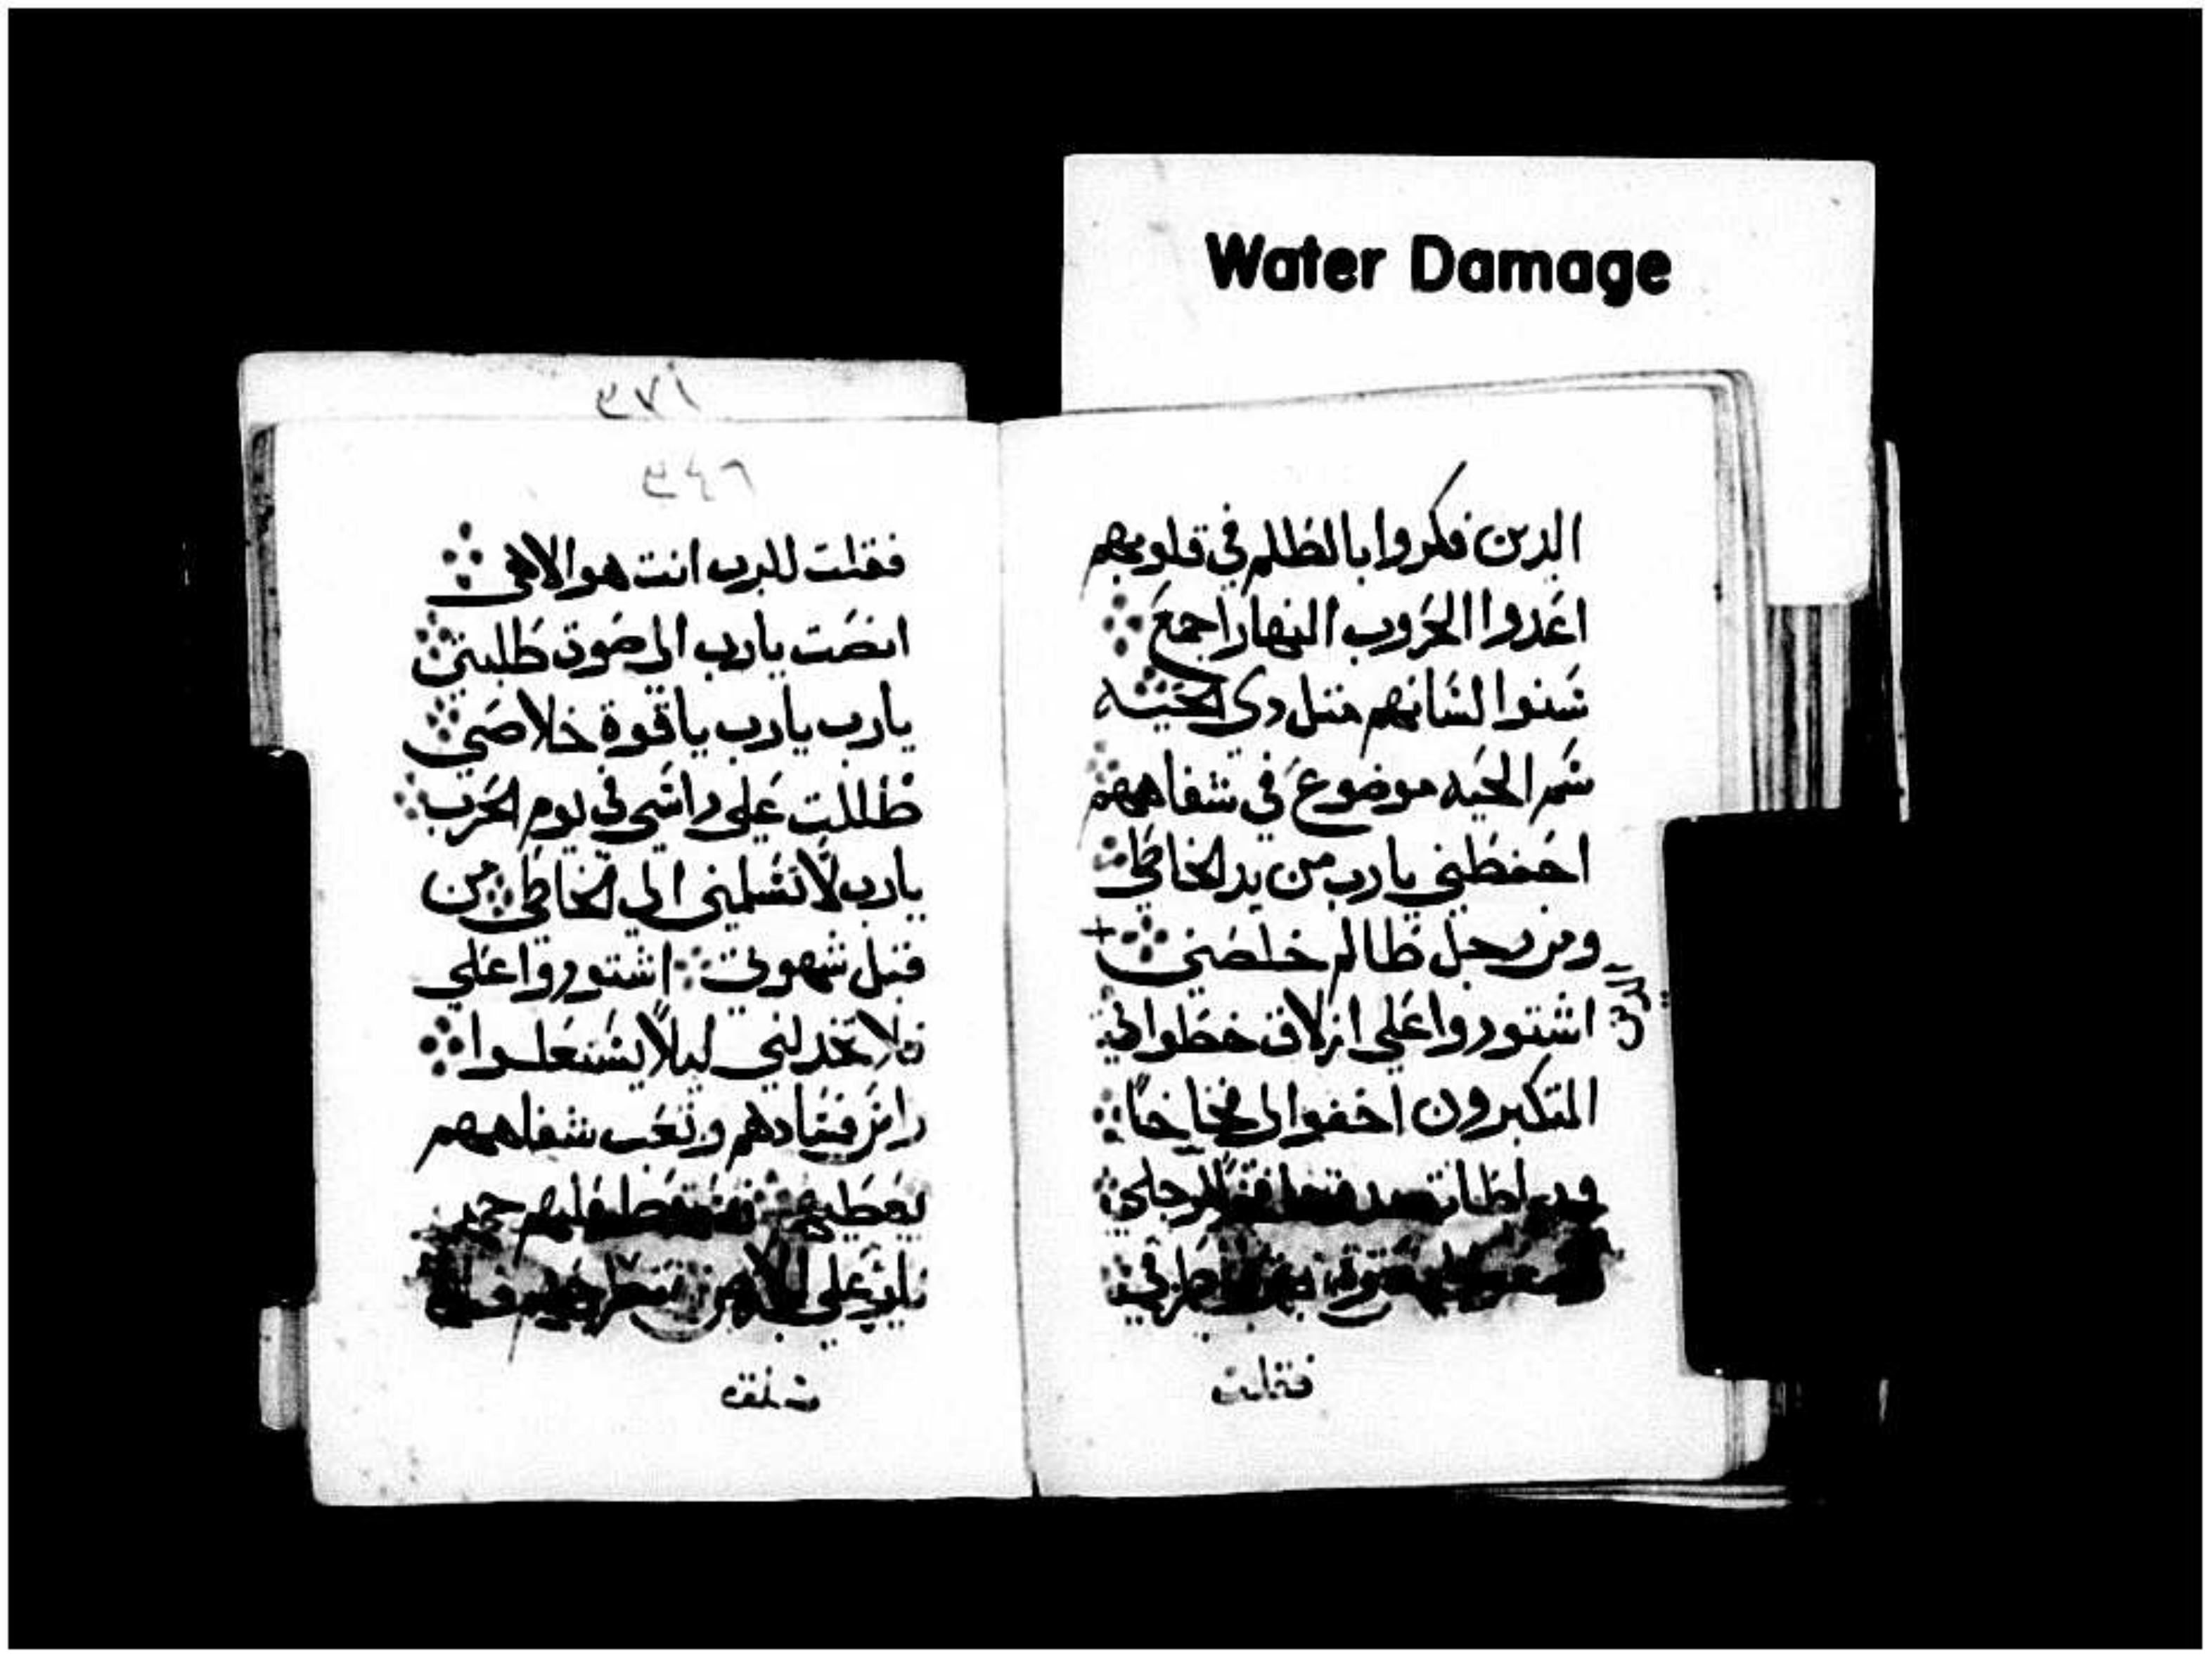 Water Damage
الدين فكروا بالظلم في قلوبهم
اعدوا الحروب النهار اجمع
سنوا لسانهم متل دي الحيه
سم الحيه موضوع في شفاههم
احفظني يارب من يد الخاطي
ومن رجل ظالم خلصني
الدين
اشتوروا علي ازلاق خطواتي
المتكبرون اخفوا لي فخاخا
لرجلي
طرقي
فقلت
٣٧١
٣٤٦
فقلت للرب انت هو الاهي
انصت يارب الي صوت طلبتي
يارب يارب ياقوة خلاصي
ظللت علي راسي في يوم الحرب
يارب لا تسلمني الي الخاطي من
قبل شهوتي اشتوروا علي
فلا تخدلني ليلا يستعلوا
راس فسادهم وتعب شفاههم
يغطيهم عليهم جمر
نار علي الارض